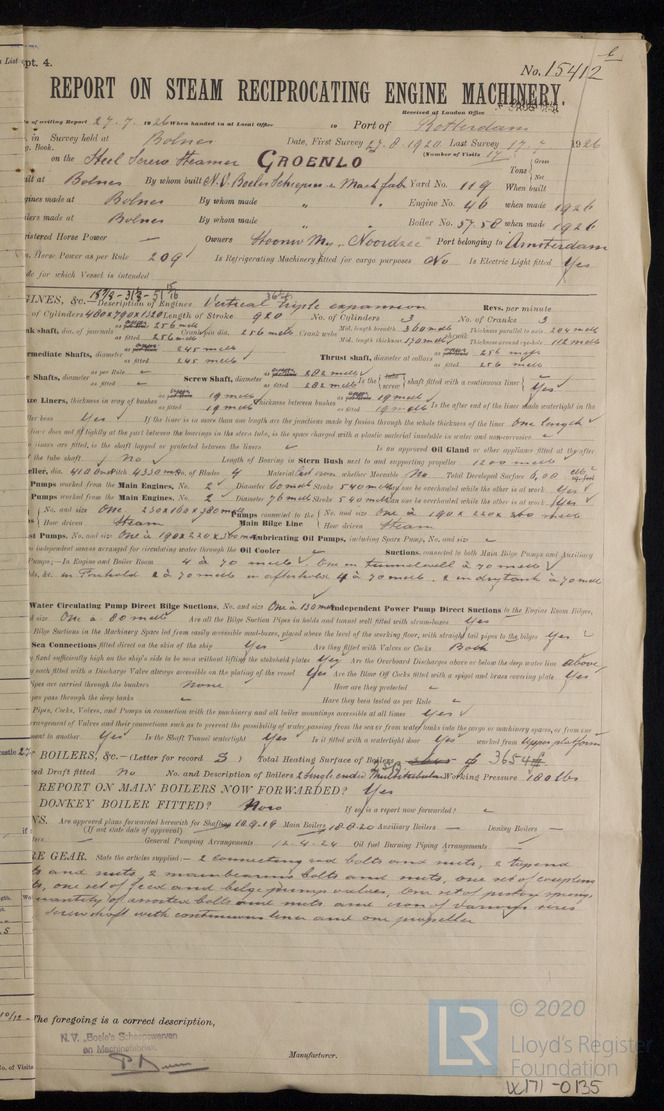 pt. 4.
No. 15412
REPORT ON STEAM RECIPROCATING ENGINE MACHINERY.
Received at London Office
of writing Report 27.7.1926 When handed in at Local Office to Port of Rotterdam
in Survey held at Bolnes Date, First Survey 27.8.1920 Last Survey 17.7.1926
g. Book. (Number of Visits 17)
on the Steel Screw Steamer GROENLO Tons Gross Net
ilt at Bolnes By whom built N.V. Boeles Scheepsw. & Mach. fab. Yard No. 119 When built
gines made at Bolnes By whom made " " Engine No. 46 when made 1926
ilers made at Bolnes By whom made " " Boiler No. 57.58 when made 1926
istered Horse Power — Owners Stoomv. My. "Noordzee" Port belonging to Amsterdam
Horse Power as per Rule 209 Is Refrigerating Machinery fitted for cargo purposes No Is Electric Light fitted Yes
de for which Vessel is intended
GINES, &c.—Description of Engines Vertical triple expansion Revs. per minute
of Cylinders 460x790x1320 Length of Stroke 920 No. of Cylinders 3 No. of Cranks 3
nk shaft, dia. of journals as fitted 256 mm Crank pin dia. 256 mm Crank webs Mid. length breadth 360 Thickness parallel to axis 204
Mid. length thickness 170 Thickness around eyehole 112
ermediate Shafts, diameter as fitted 245 Thrust shaft, diameter at collars as fitted 256
e Shafts, diameter as per Rule as fitted Screw Shaft, diameter as fitted 282 Is the screw shaft fitted with a continuous liner Yes
ze Liners, thickness in way of bushes as fitted 19 Thickness between bushes as fitted 19 Is the after end of the liner made watertight in the
ller boss Yes If the liner is in more than one length are the junctions made by fusion through the whole thickness of the liner One length
liner does not fit tightly at the part between the bearings in the stern tube, is the space charged with a plastic material insoluble in water and non-corrosive
liners are fitted, is the shaft lapped or protected between the liners Is an approved Oil Gland or other appliance fitted at the after
f the tube shaft No Length of Bearing in Stern Bush next to and supporting propeller 1200
eller, dia. 4100 Pitch 4330 No. of Blades 4 Material Cast iron whether Moveable No Total Developed Surface 6,00 sq. feet
Pumps worked from the Main Engines, No. 2 Diameter 60 Stroke 540 Can one be overhauled while the other is at work Yes
Pumps worked from the Main Engines, No. 2 Diameter 76 Stroke 540 Can one be overhauled while the other is at work Yes
No. and size One 230x160x380 Pumps connected to the Main Bilge Line No. and size One à 190x220x360
How driven Steam How driven Steam
st Pumps, No. and size One à 190x220x360 Lubricating Oil Pumps, including Spare Pump, No. and size
o independent means arranged for circulating water through the Oil Cooler Suctions, connected to both Main Bilge Pumps and Auxiliary
Pumps;—In Engine and Boiler Room 4 à 70 One in tunnelwell à 70
ds, &c. in Forehold 2 à 70 in afterhold 4 à 70 2 in drytank à 70
Water Circulating Pump Direct Bilge Suctions, No. and size One à 130 Independent Power Pump Direct Suctions to the Engine Room Bilges,
d size One à 80 Are all the Bilge Suction Pipes in holds and tunnel well fitted with strum-boxes Yes
Bilge Suctions in the Machinery Space led from easily accessible mud-boxes, placed above the level of the working floor, with straight tail pipes to the bilges Yes
Sea Connections fitted direct on the skin of the ship Yes Are they fitted with Valves or Cocks Both
y fixed sufficiently high on the ship's side to be seen without lifting the stokehold plates Yes Are the Overboard Discharges above or below the deep water line above
y each fitted with a Discharge Valve always accessible on the plating of the vessel Yes Are the Blow Off Cocks fitted with a spigot and brass covering plate Yes
pes are carried through the bunkers None How are they protected
pes pass through the deep tanks Have they been tested as per Rule
Pipes, Cocks, Valves, and Pumps in connection with the machinery and all boiler mountings accessible at all times Yes
rrangement of Valves and their connections such as to prevent the possibility of water passing from the sea or from water tanks into the cargo or machinery spaces, or from one
ment to another Yes Is the Shaft Tunnel watertight Yes Is it fitted with a watertight door Yes worked from Upper platform
BOILERS, &c.—(Letter for record S) Total Heating Surface of Boilers 3654
ed Draft fitted No No. and Description of Boilers 2 Single ended Multitubular Working Pressure 180 lbs
REPORT ON MAIN BOILERS NOW FORWARDED? Yes
DONKEY BOILER FITTED? None If so, is a report now forwarded?
NS. Are approved plans forwarded herewith for Shafting 18.9.19 Main Boilers 18.8.20 Auxiliary Boilers — Donkey Boilers —
(If not state date of approval)
General Pumping Arrangements 12.4.24 Oil fuel Burning Piping Arrangements —
RE GEAR. State the articles supplied:— 2 connecting rod bolts and nuts, 2 topend
ts and nuts, 2 mainbearing bolts and nuts, one set of coupling
ts, one set of feed and bilge pump valves, one set of piston springs
uantity of assorted bolts and nuts and iron of various sizes
Screwshaft with continuous liner and one propeller
The foregoing is a correct description,
N.V. „Boele's Scheepswerven
en Machinefabriek
Manufacturer.
© 2020
LR
Lloyd's Register
Foundation
W171-0135